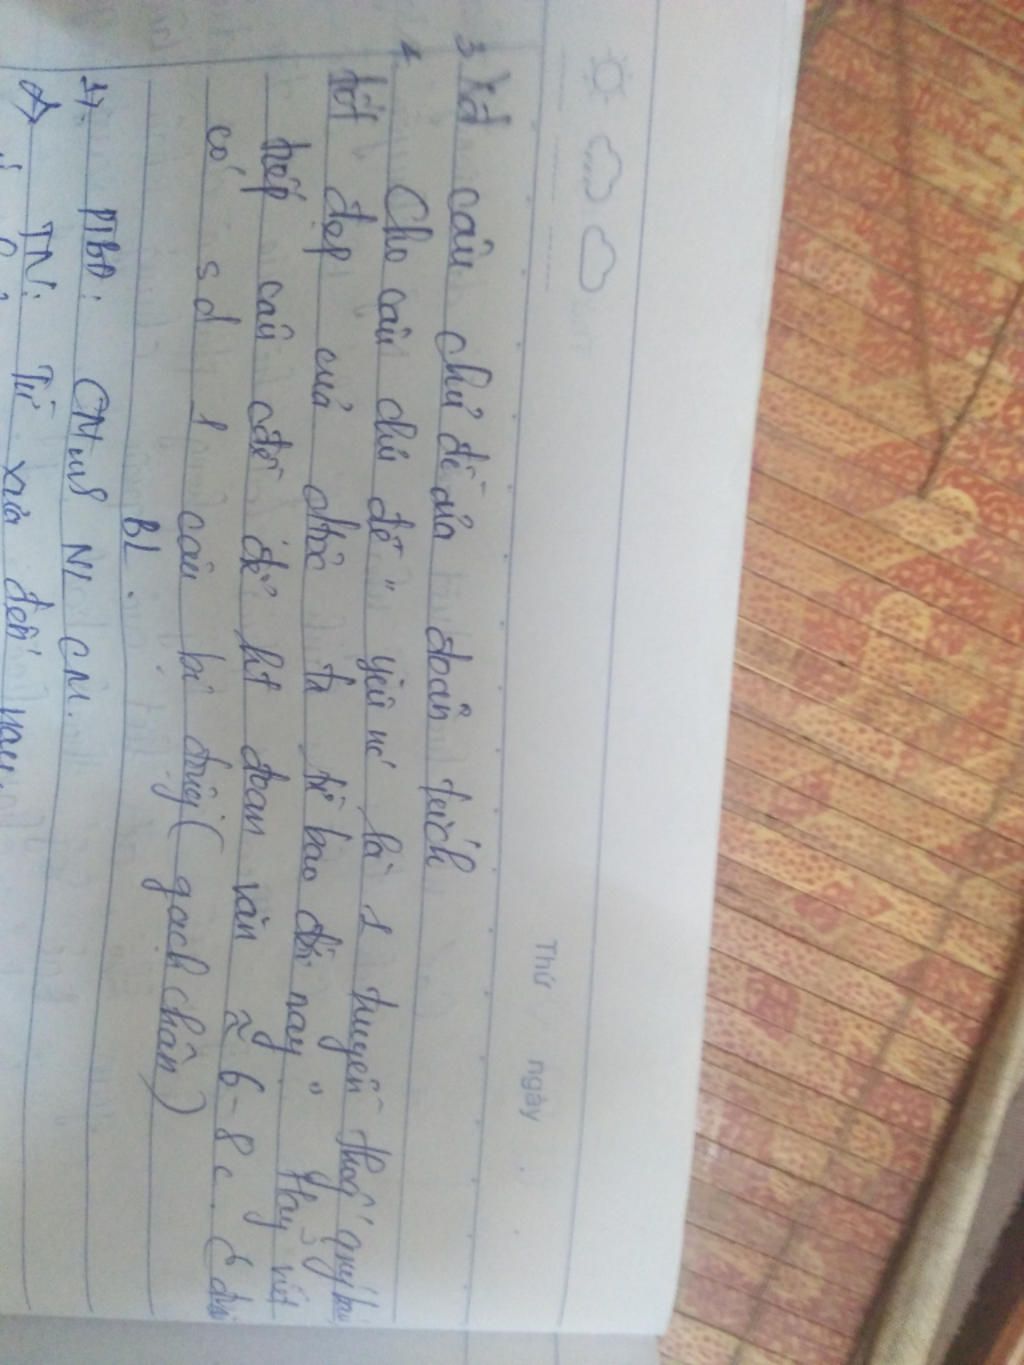 Thứ ngày
3. Xđ câu chủ đề của đoạn trích
4 Cho câu chủ đề " yêu nc là 1 truyền thống quý báu
tốt đẹp của dtộc ta từ bao đời nay " Hãy viết
tiếp câu cđề để ht đoạn văn ≈ 6 - 8 c. (đoạn
có sd 1 câu bị động ( gạch chân )
BL.
1) PTBĐ: CM NL CM.
2) TN: Từ xưa đến nay,